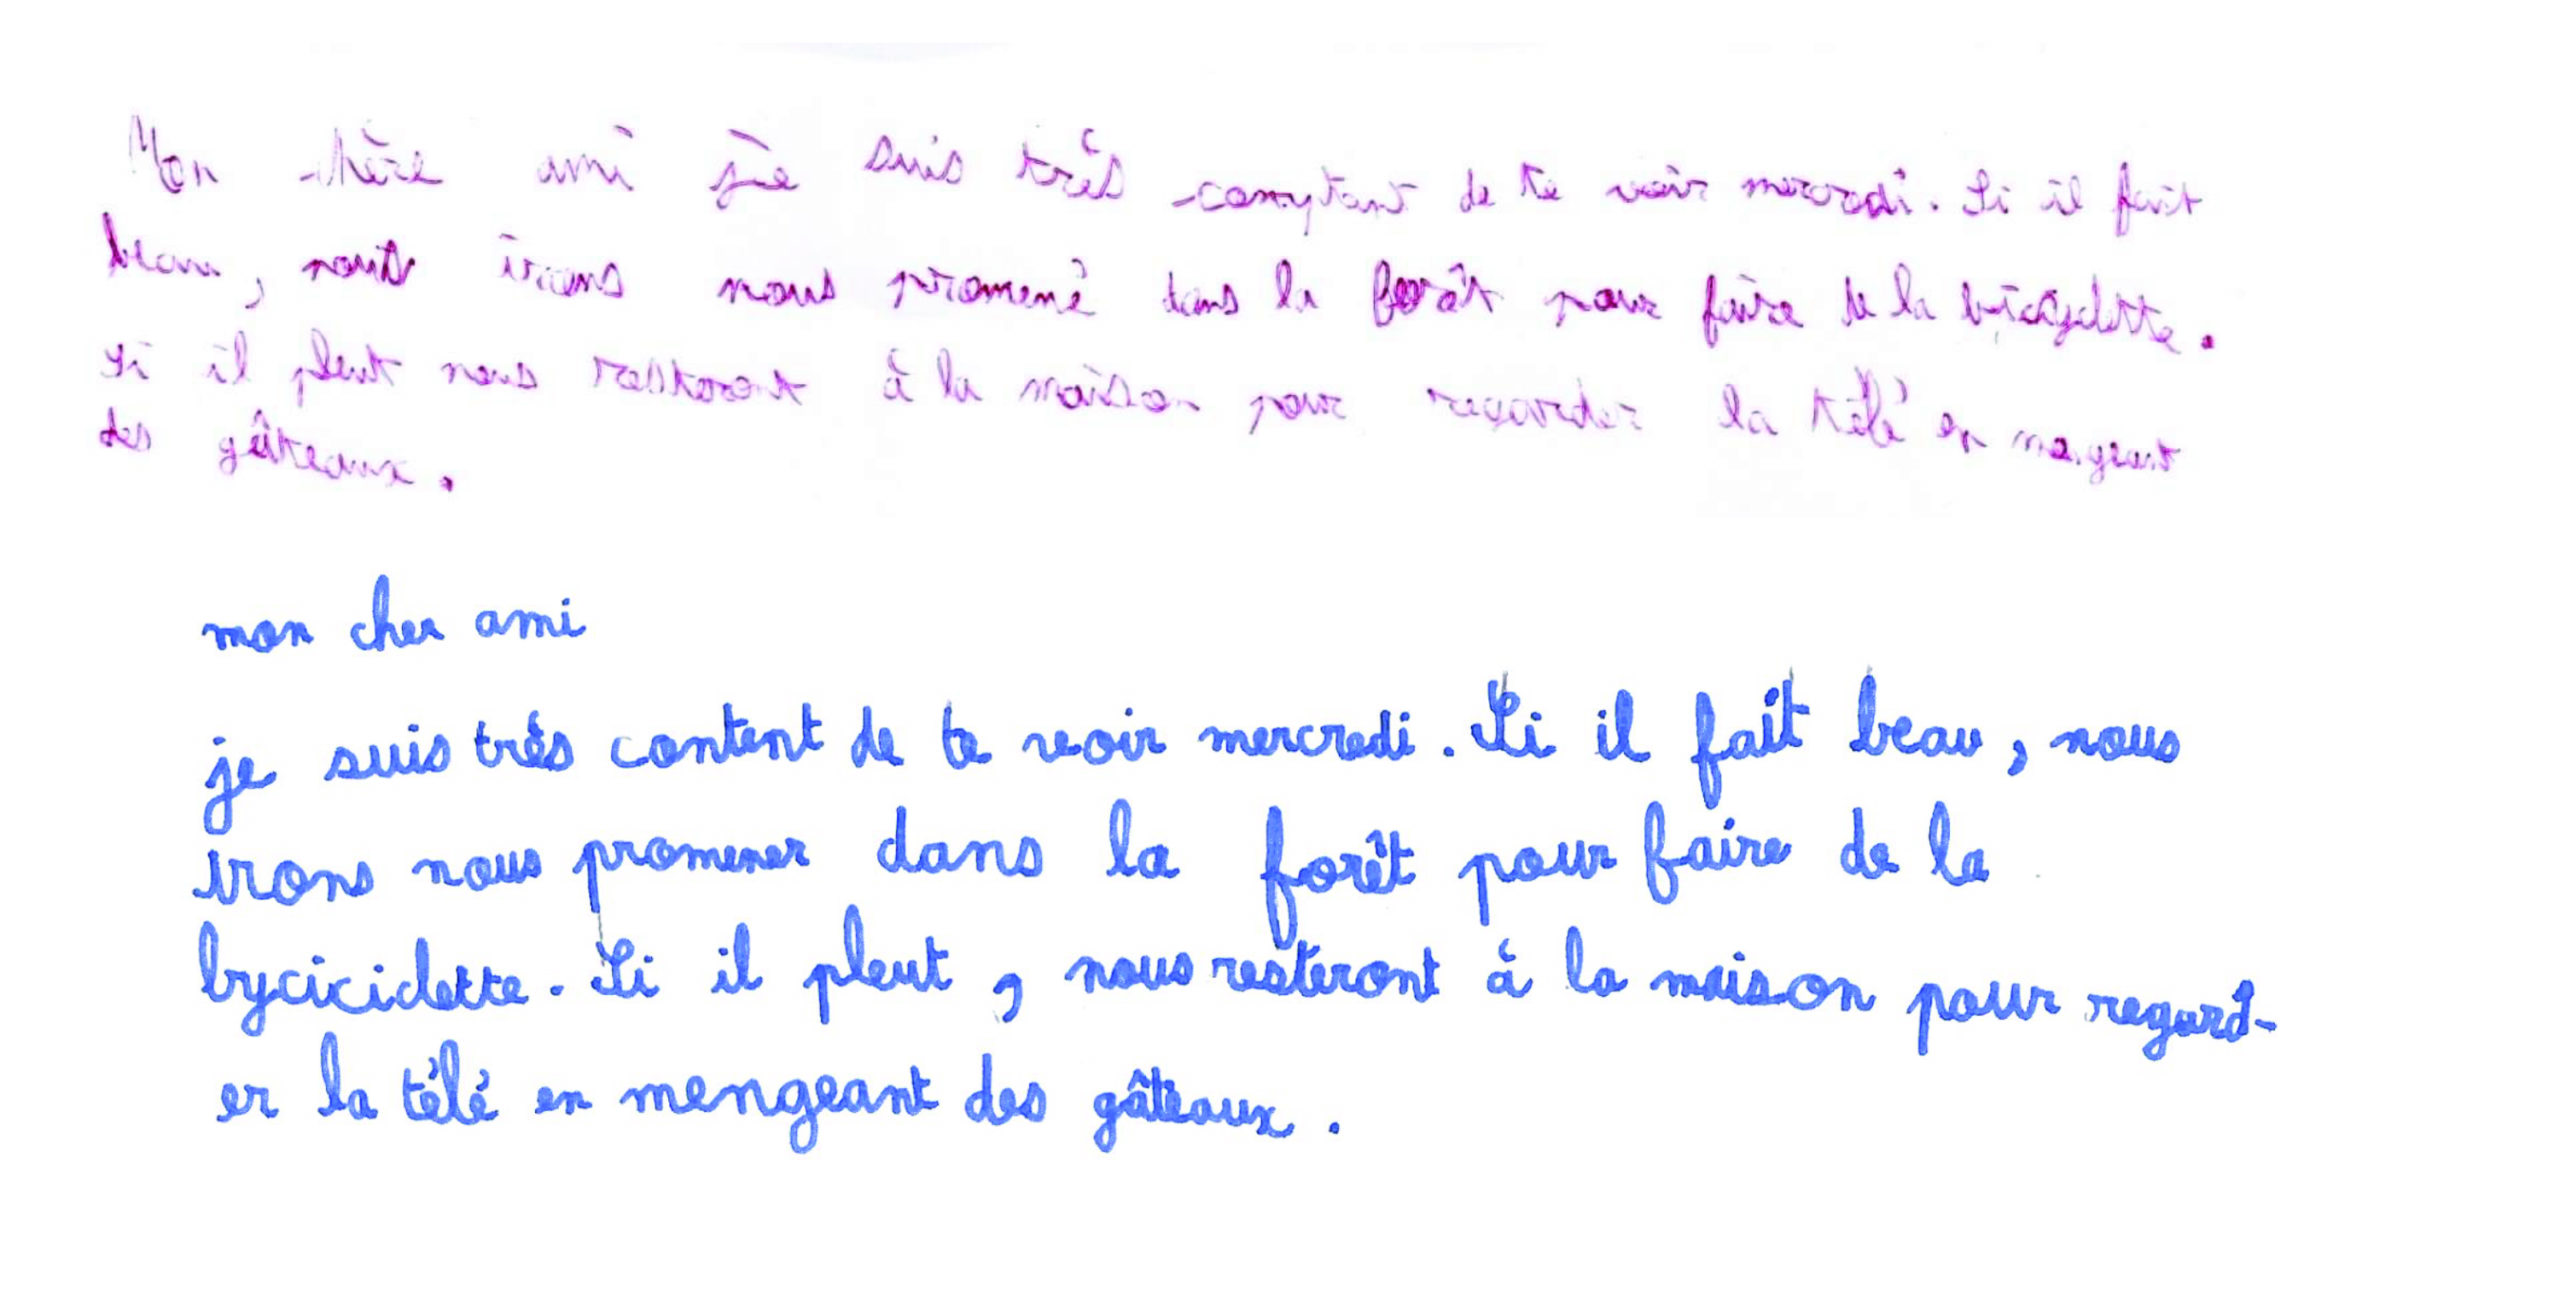 Mon chère ami je suis très comptant de te voir mercredi. Si il fait
beau, nous irons nous promené dans la forêt pour faire de la bicyclette.
Si il pleut nous resteront à la maison pour regarder la télé en mageant
des gâteaux.
mon cher ami
je suis très content de te revoir mercredi. Si il fait beau, nous
irons nous promener dans la forêt pour faire de la
byciciclette. Si il pleut, nous resteront à la maison pour regard-
er la télé en mengeant des gâteaux.